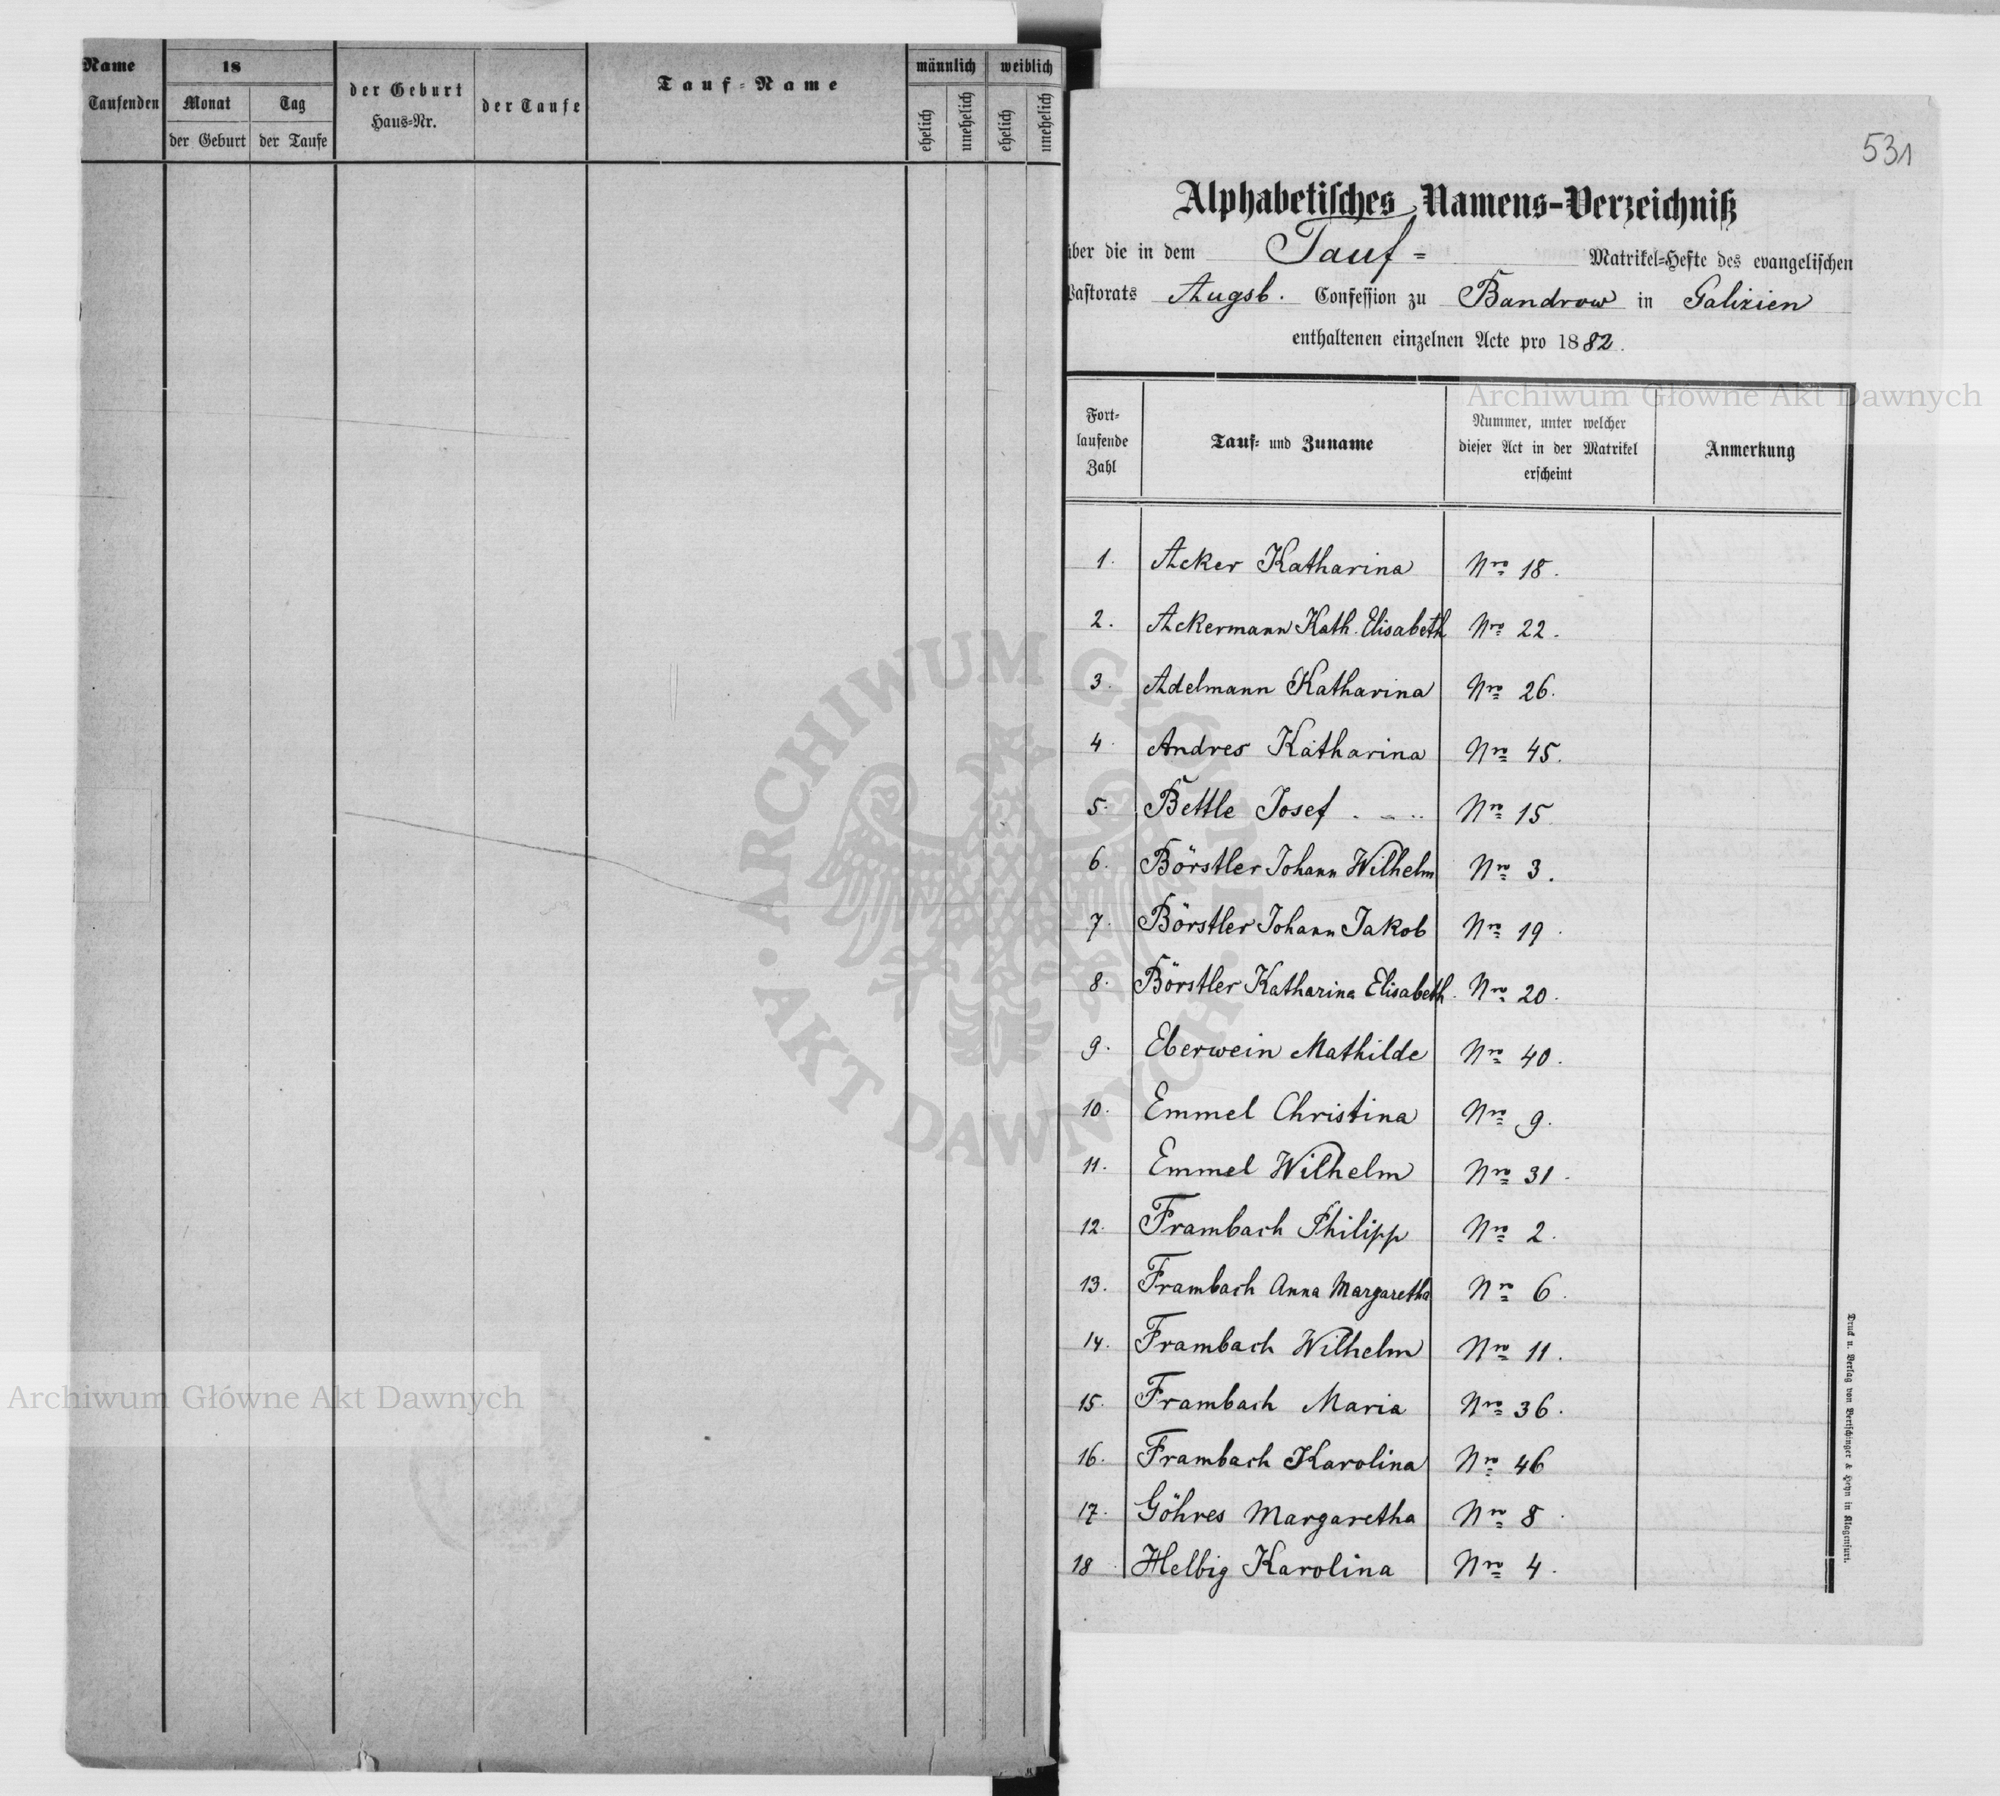 Name
Taufenden
18
Monat
Tag
der Geburt
der Taufe
der Geburt
Haus=Nr.
der Taufe
Tauf=Name
männlich
weiblich
ehelich
unehelich
ehelich
unehelich
531
Alphabetisches Namens-Verzeichniß
über die in dem Tauf= Matrikel=Hefte des evangelischen
Pastorats Augsb. Confession zu Bandrow in Galizien
enthaltenen einzelnen Acte pro 1882.
Fort=
laufende
Zahl
Tauf= und Zuname
Nummer, unter welcher
dieser Act in der Matrikel
erscheint
Anmerkung
1. Acker Katharina Nro 18.
2. Ackermann Kath. Elisabeth Nro 22.
3. Adelmann Katharina Nro 26.
4. Andres Katharina Nro 45.
5. Bettle Josef Nro 15
6. Börstler Johann Wilhelm Nro 3.
7. Börstler Johann Jakob Nro 19.
8. Börstler Katharina Elisabeth. Nro 20.
9. Eberwein Mathilde Nro 40.
10. Emmel Christina Nro 9.
11. Emmel Wilhelm Nro 31.
12. Frambach Philipp Nro 2.
13. Frambach Anna Margaretha Nro 6.
14. Frambach Wilhelm Nro 11.
15. Frambach Maria Nro 36.
16. Frambach Karolina Nro 46
17. Göhres Margaretha Nro 8.
18. Helbig Karolina Nro 4.
Druck u. Verlag von Bertschinger & Heyn in Klagenfurt.
Archiwum Główne Akt Dawnych
Archiwum Główne Akt Dawnych
ARCHIWUM GŁÓWNE
AKT DAWNYCH